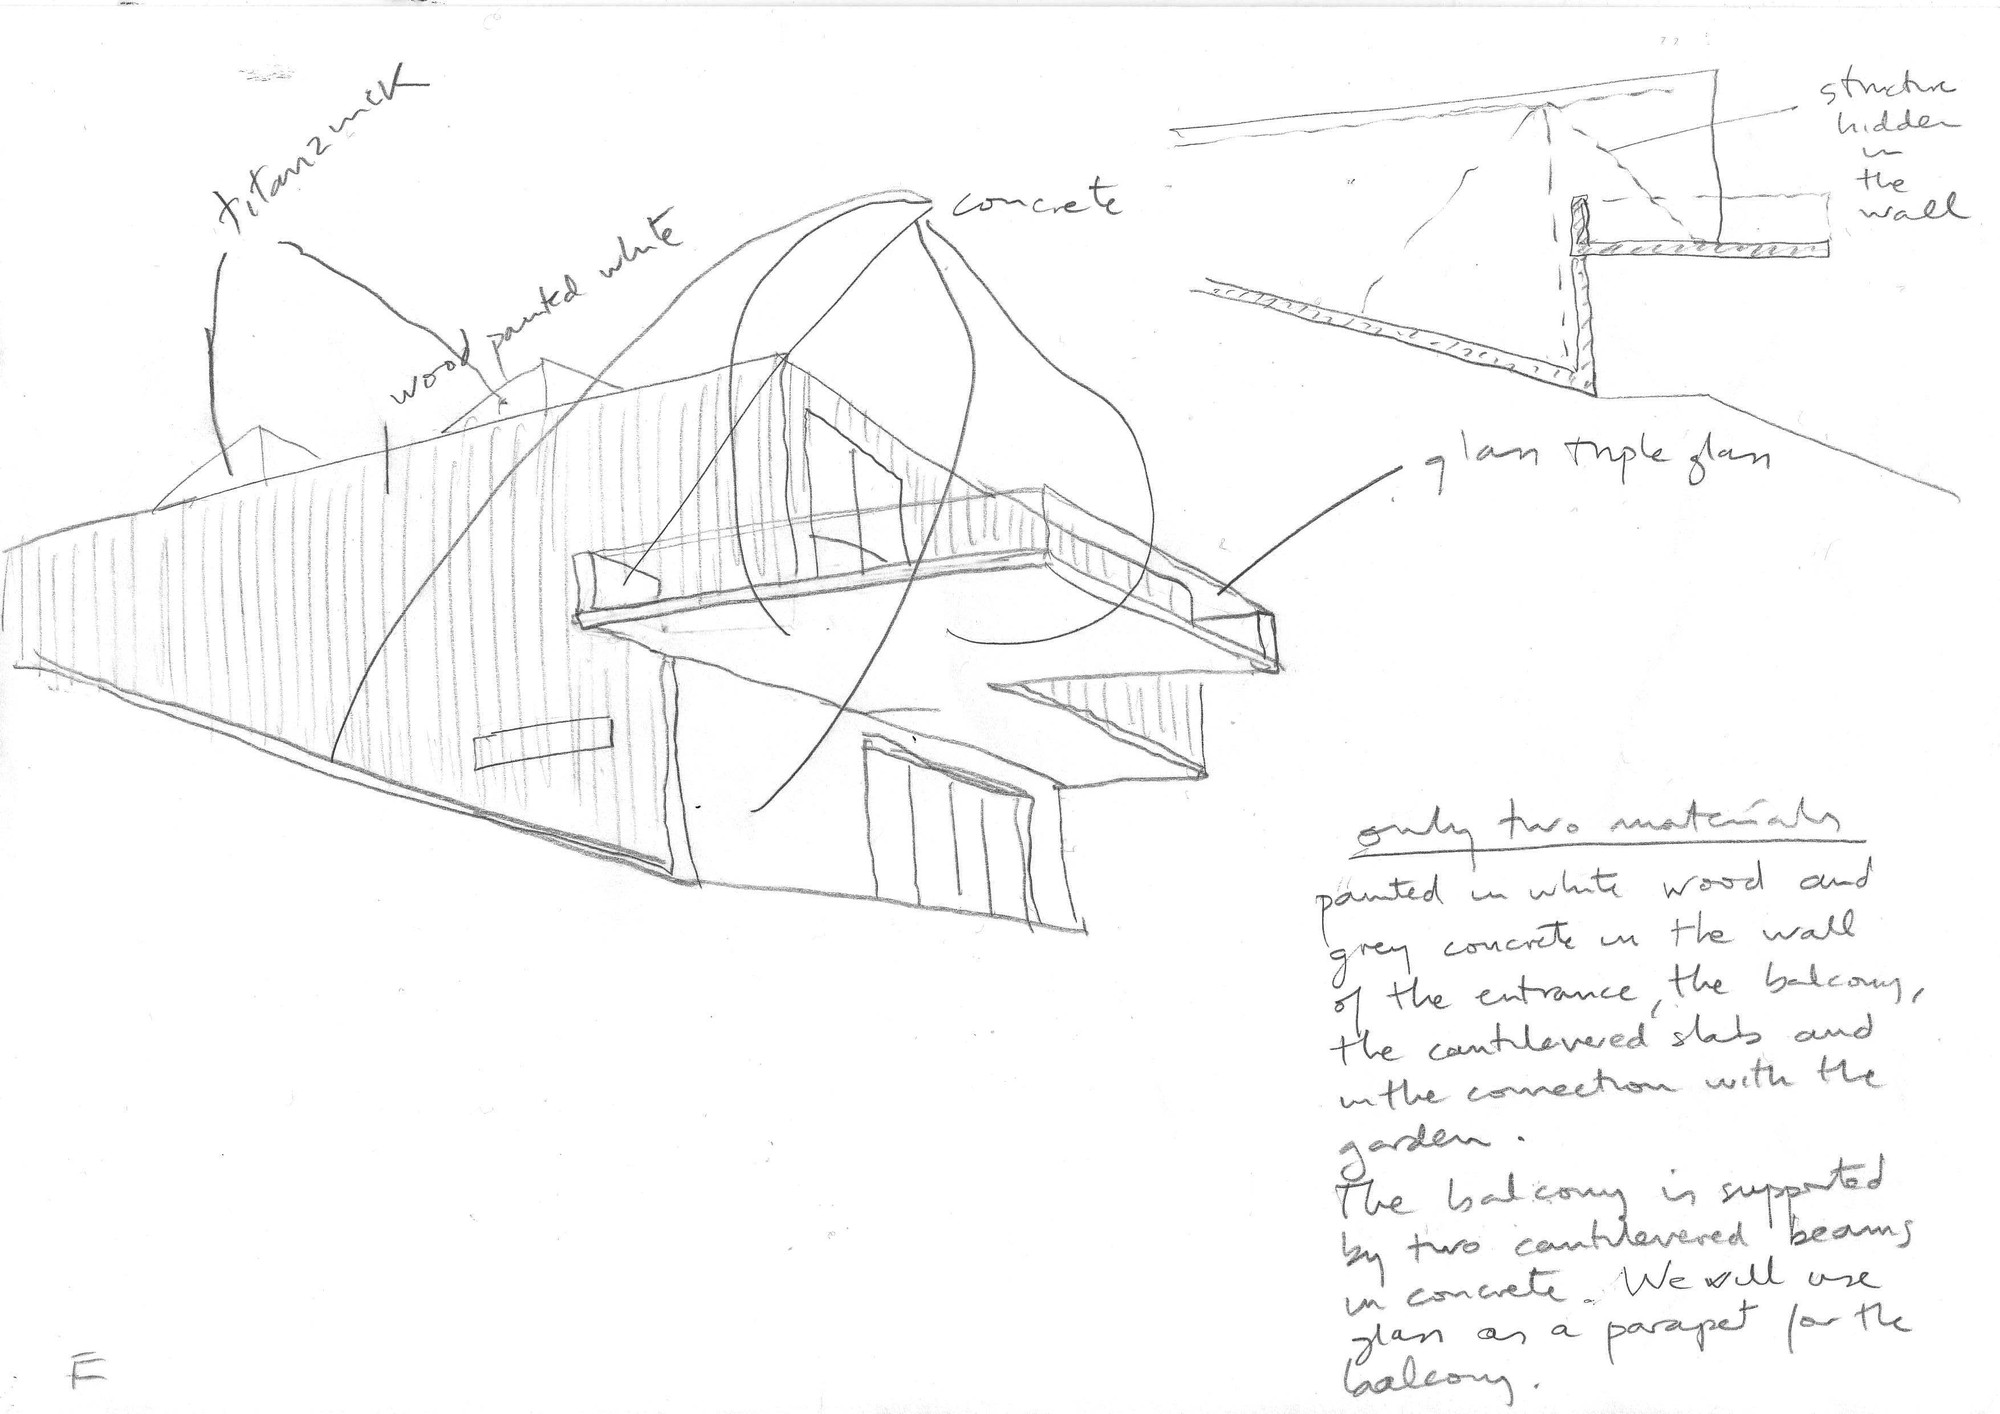 titanzinck
wood painted white
concrete
structure
hidden
in
the
wall
glass triple glass
only two materials
painted in white wood and
grey concrete in the wall
of the entrance, the balcony,
the cantilevered slab and
in the connection with the
garden.
The balcony is supported
by two cantilevered beams
in concrete. We will use
glass as a parapet for the
balcony.
E